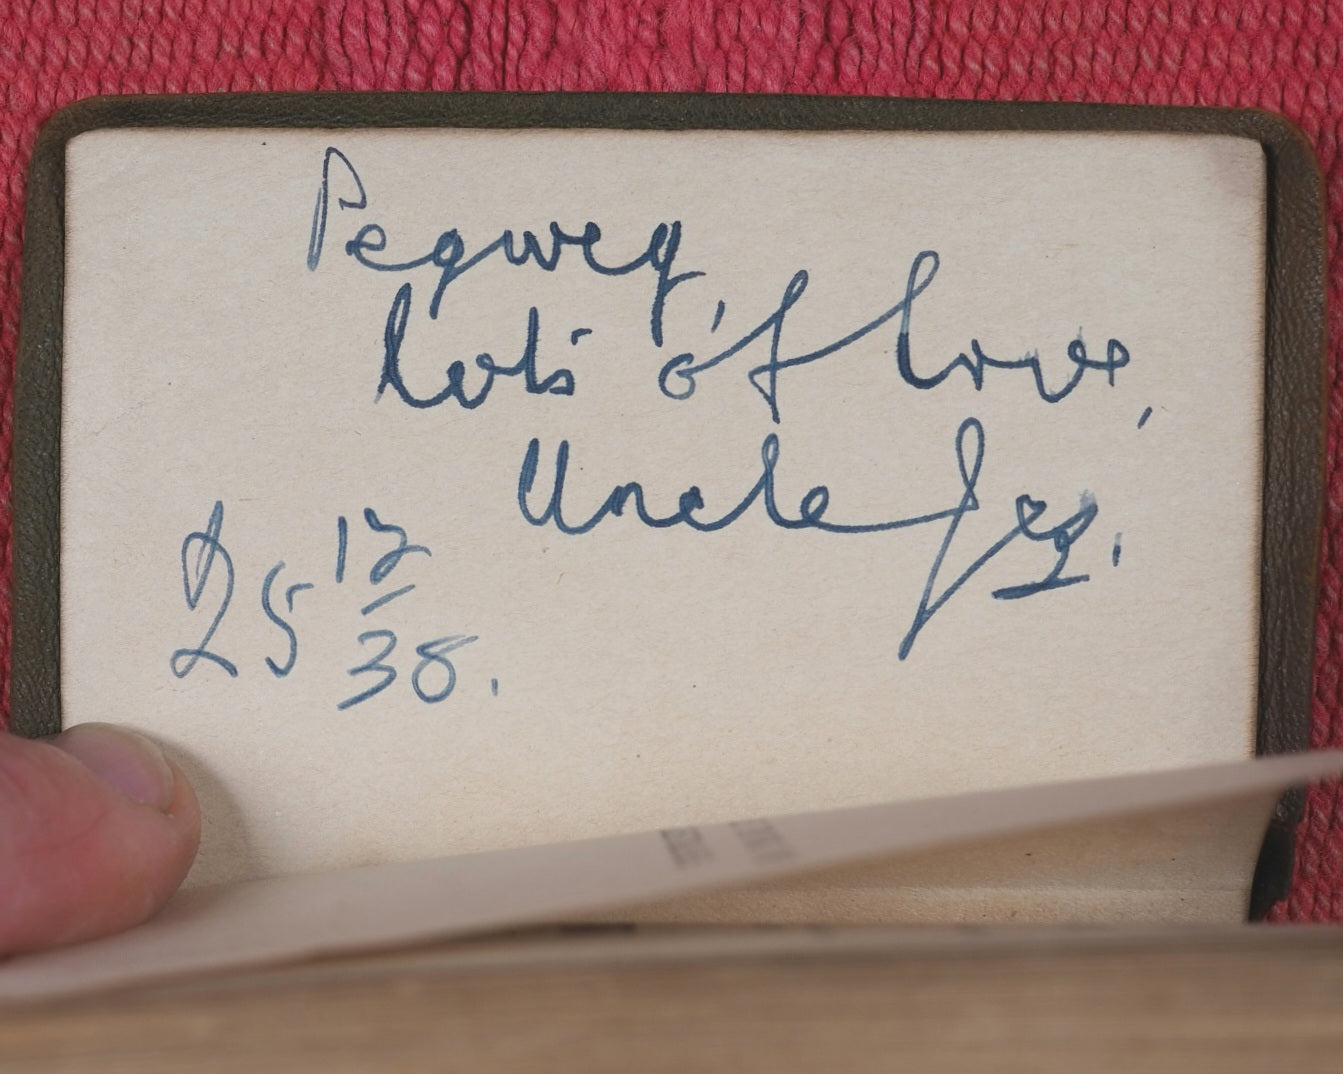 Pegweg,
lots of love,
Uncle
25 12/38.